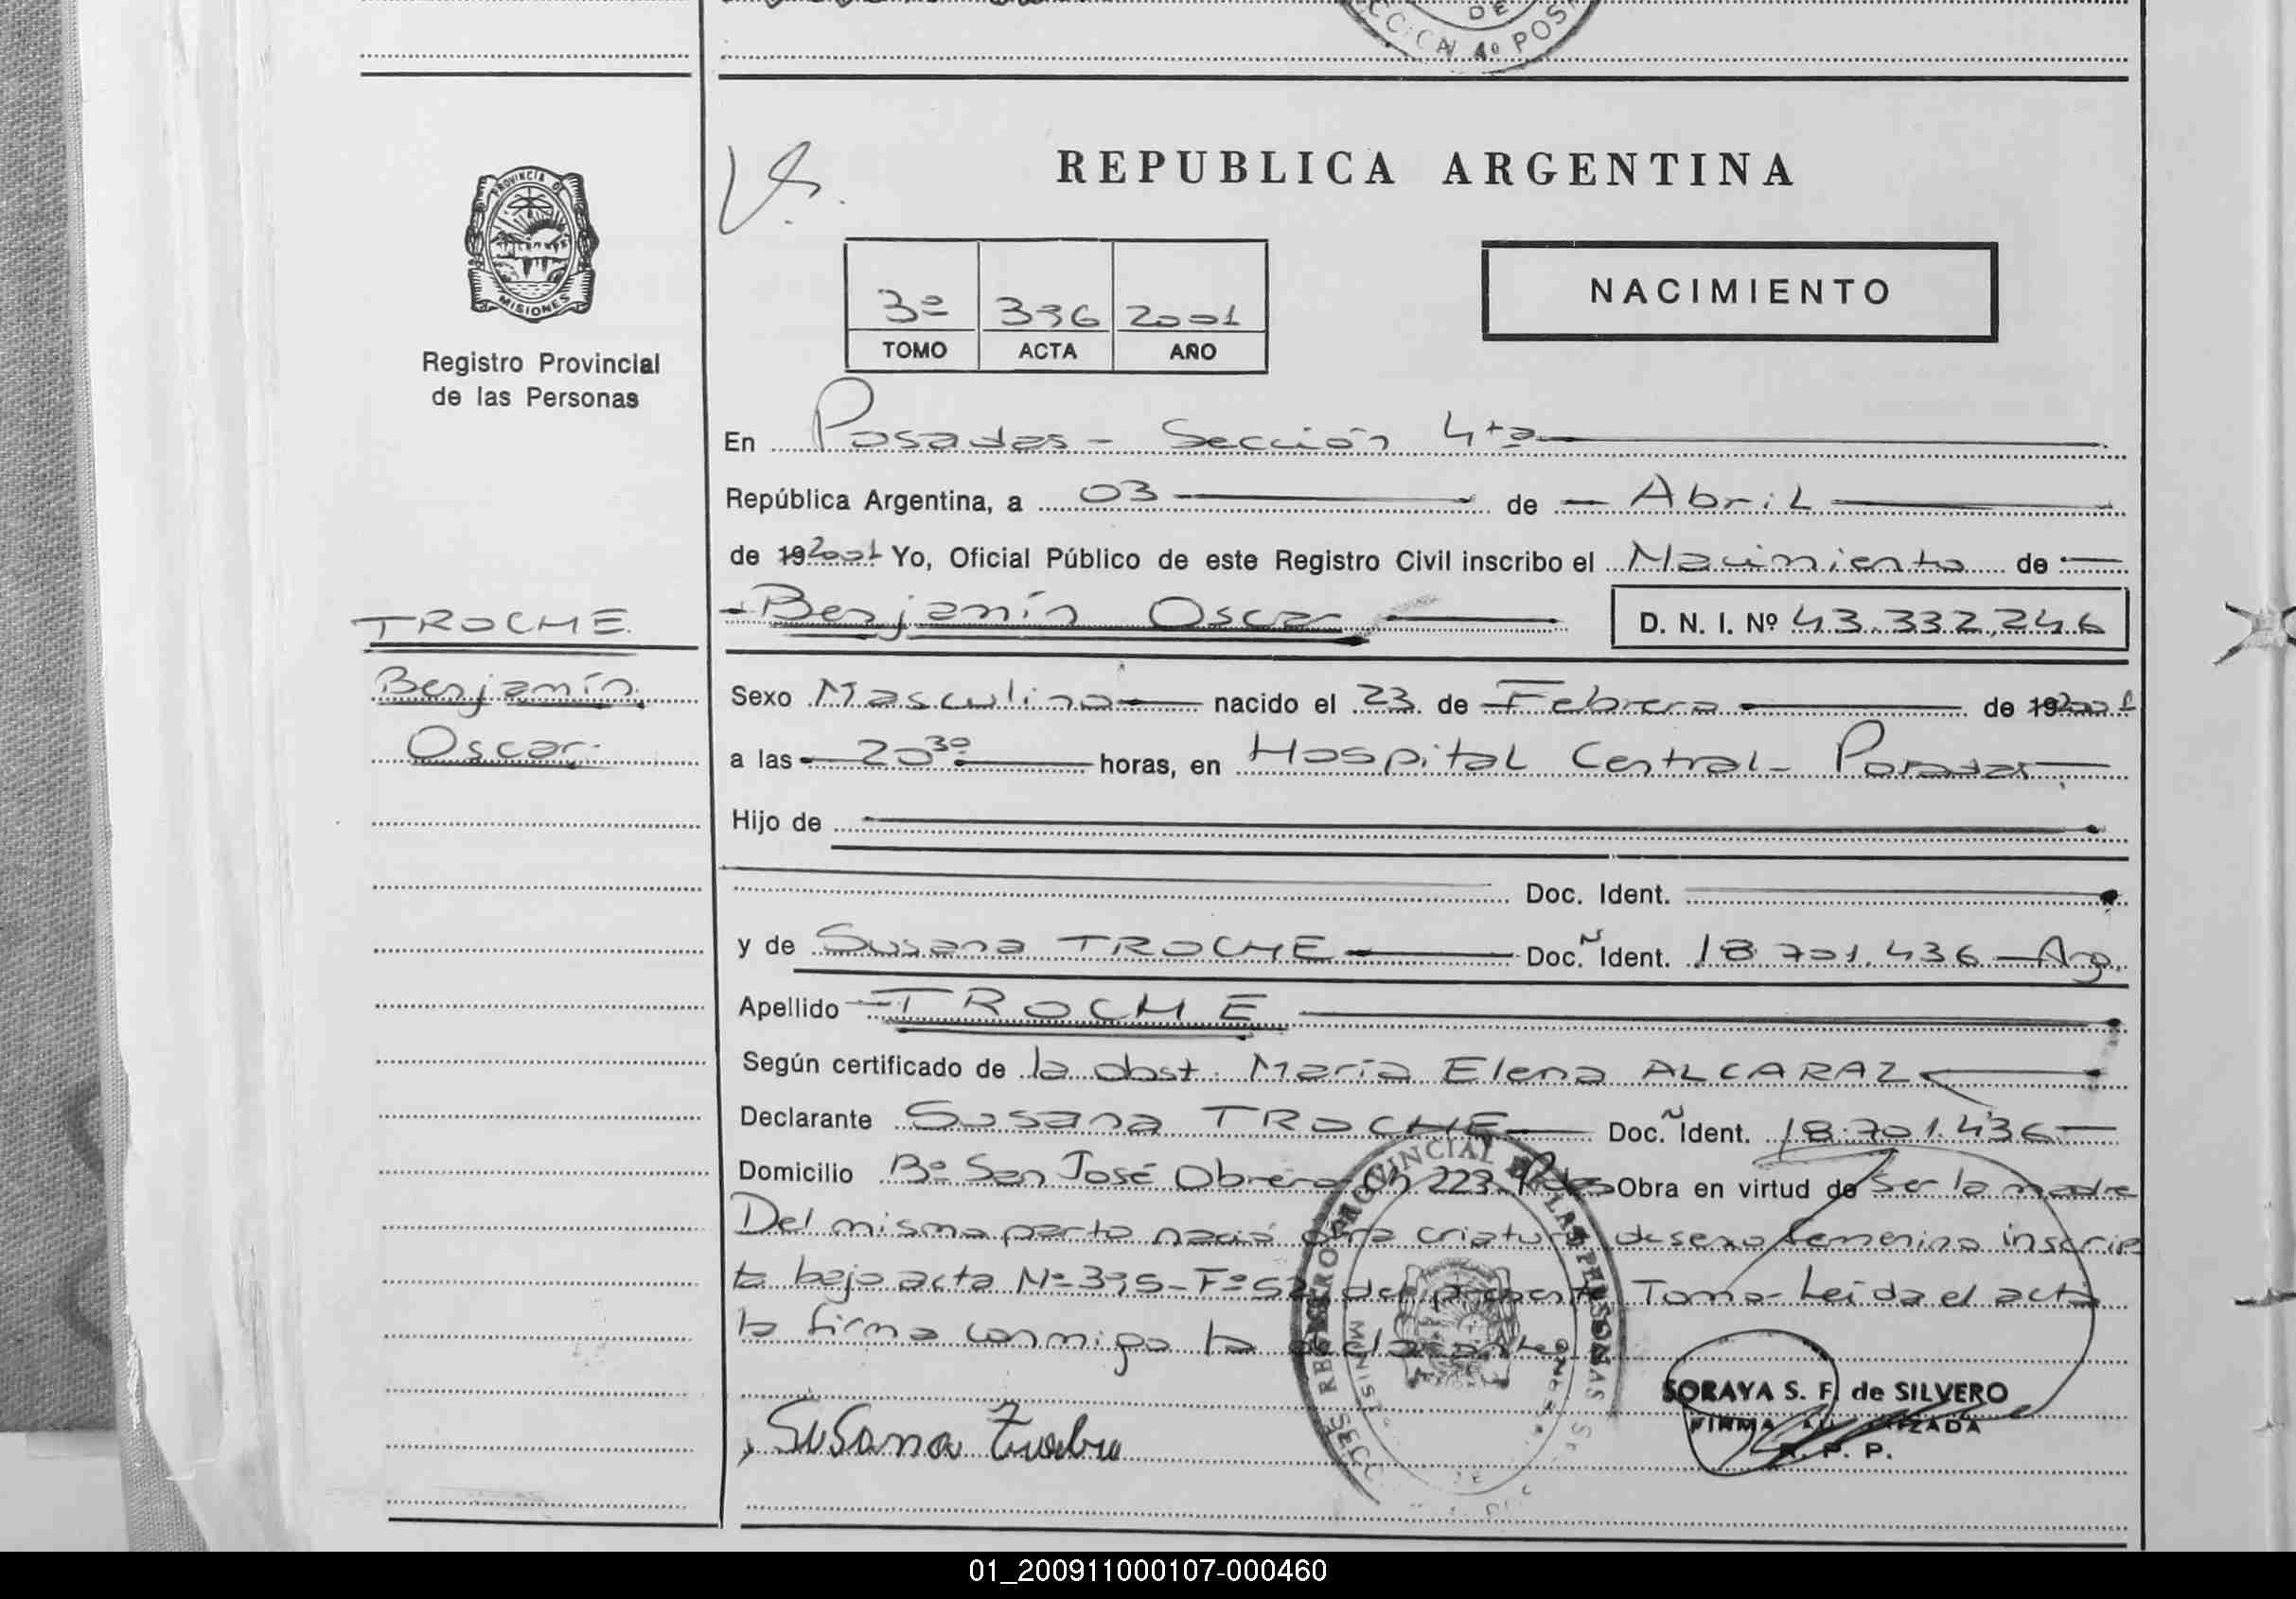 DE
CCION 4º POS
PROVINCIA D
MISIONES
Registro Provincial
de las Personas
REPUBLICA ARGENTINA
NACIMIENTO
3º 396 2001
TOMO ACTA AÑO
En Posadas - Sección 4ta
República Argentina, a 03 de Abril
de 19 2001 Yo, Oficial Público de este Registro Civil inscribo el Nacimiento de
TROCHE
Benjamín Oscar D. N. I. Nº 43.332.246
Benjamín
Sexo Masculino nacido el 23 de Febrero de 19 2001
Oscar
a las 20 30 horas, en Hospital Central - Posadas
Hijo de
Doc. Ident.
y de Susana TROCHE Doc. Ident. 18.701.436 - Arg.
Apellido TROCHE
Según certificado de la obst. María Elena ALCARAZ
Declarante Susana TROCHE Doc. Ident. 18.701.436
Domicilio Bº San José Obrero Ch 223 - Pdas Obra en virtud de ser la madre
Del mismo parto nació otra criatura de sexo femenino inscrip
ta bajo acta Nº 395 - Fº 52 del presente Tomo - Leída el acta
la firma conmigo la declarante
REGISTRO PROVINCIAL DE LAS PERSONAS
SORAYA S. F. de SILVERO
FIRMA AUTORIZADA
R. P. P.
Susana
01_200911000107-000460